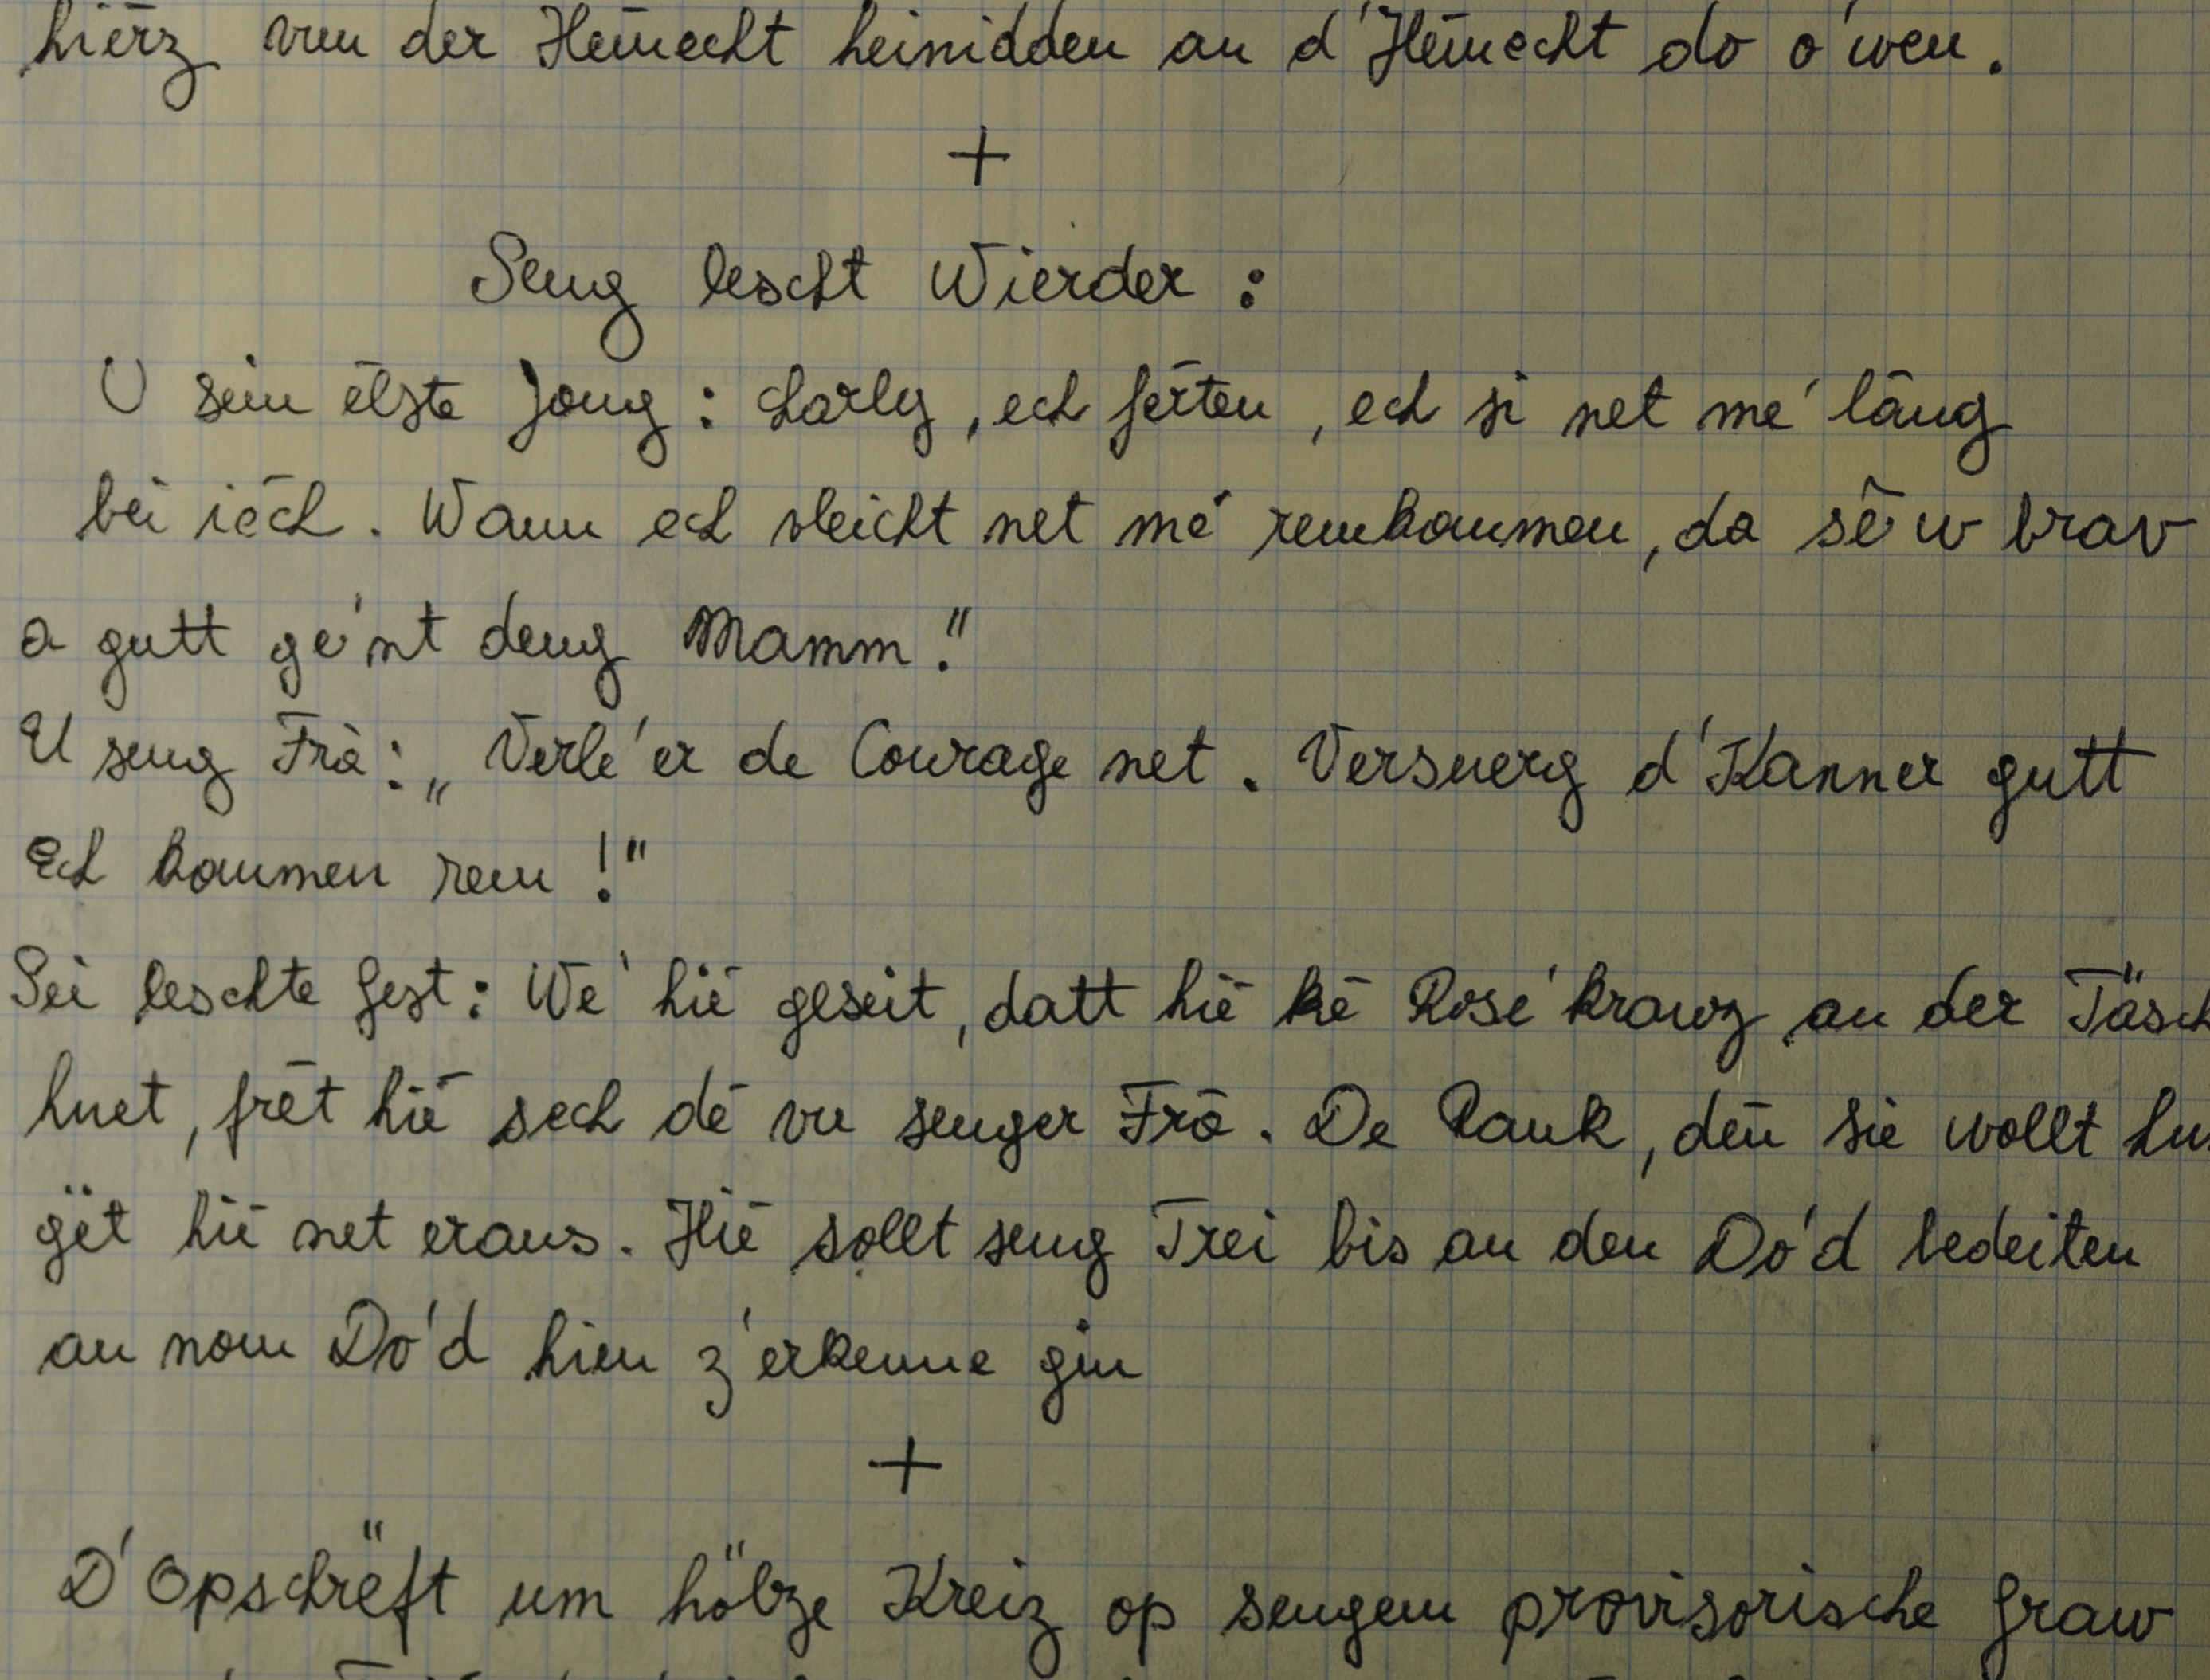 hierz vun der Hēmecht heinidden an d'Hēmecht do o'wen.
+
Seng lescht Wierder :
U sein ēlste Jong : Charly, ech fērten, ech si net me' lāng
bei iēch. Wann ech vleicht net me' remkommen, da sē w brav
a gutt ge'nt deng Mamm!"
U seng Frā: „Verle'er de Courage net. Versuerg d'Kanner gutt
Ech kommen rem!"
Sei leschte Gest: We' hiē geseit, datt hiē kē Rose'kranz an der Täsch
huet, frēt hiē sech dē vu senger Frā. De Rank, dēn sie wollt hu
gët hiē net eraus. Hiē sollt seng Trei bis an den Do'd bedeiten
an nom Do'd hien z'erkenne gin
+
D'Opschrëft um hölze Kreiz op sengem provisorische Graw